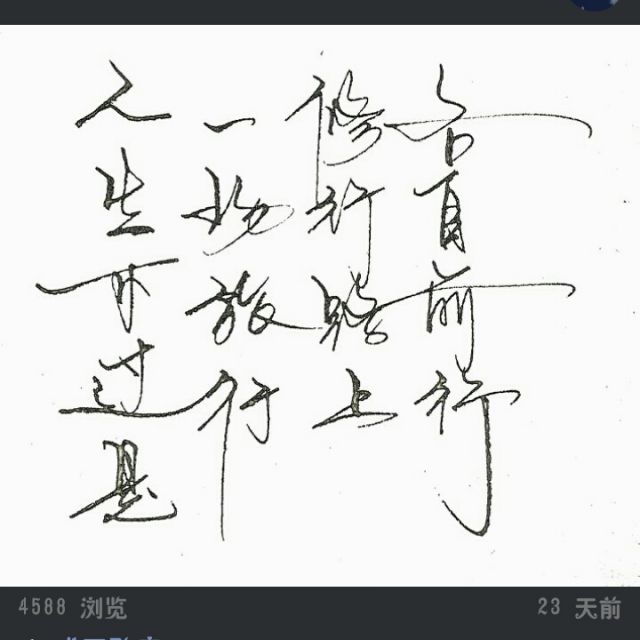 人生不过是
一场旅行
修行路上
各自前行
4588 浏览
23 天前